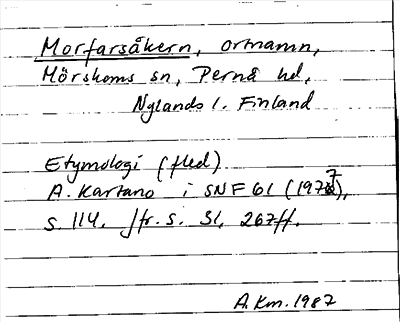 Morfarsåkern, ortnamn,
Mörskoms sn, Pernå hd,
Nylands l. Finland
Etymologi (fled)
A. Kartano i SNF 61 (1977),
s. 114. Jfr. s. 31, 267ff.
A.Km. 1987